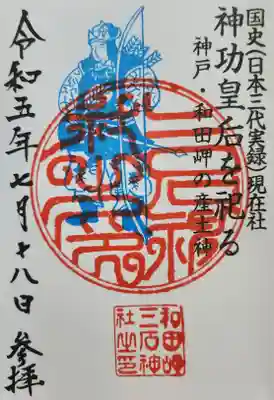 国史(日本三代実録)現在社
神功皇后を祀る
神戸・和田岬の産土神
令和五年七月十八日 参拝
三石神社
和田岬
三石神
社之印